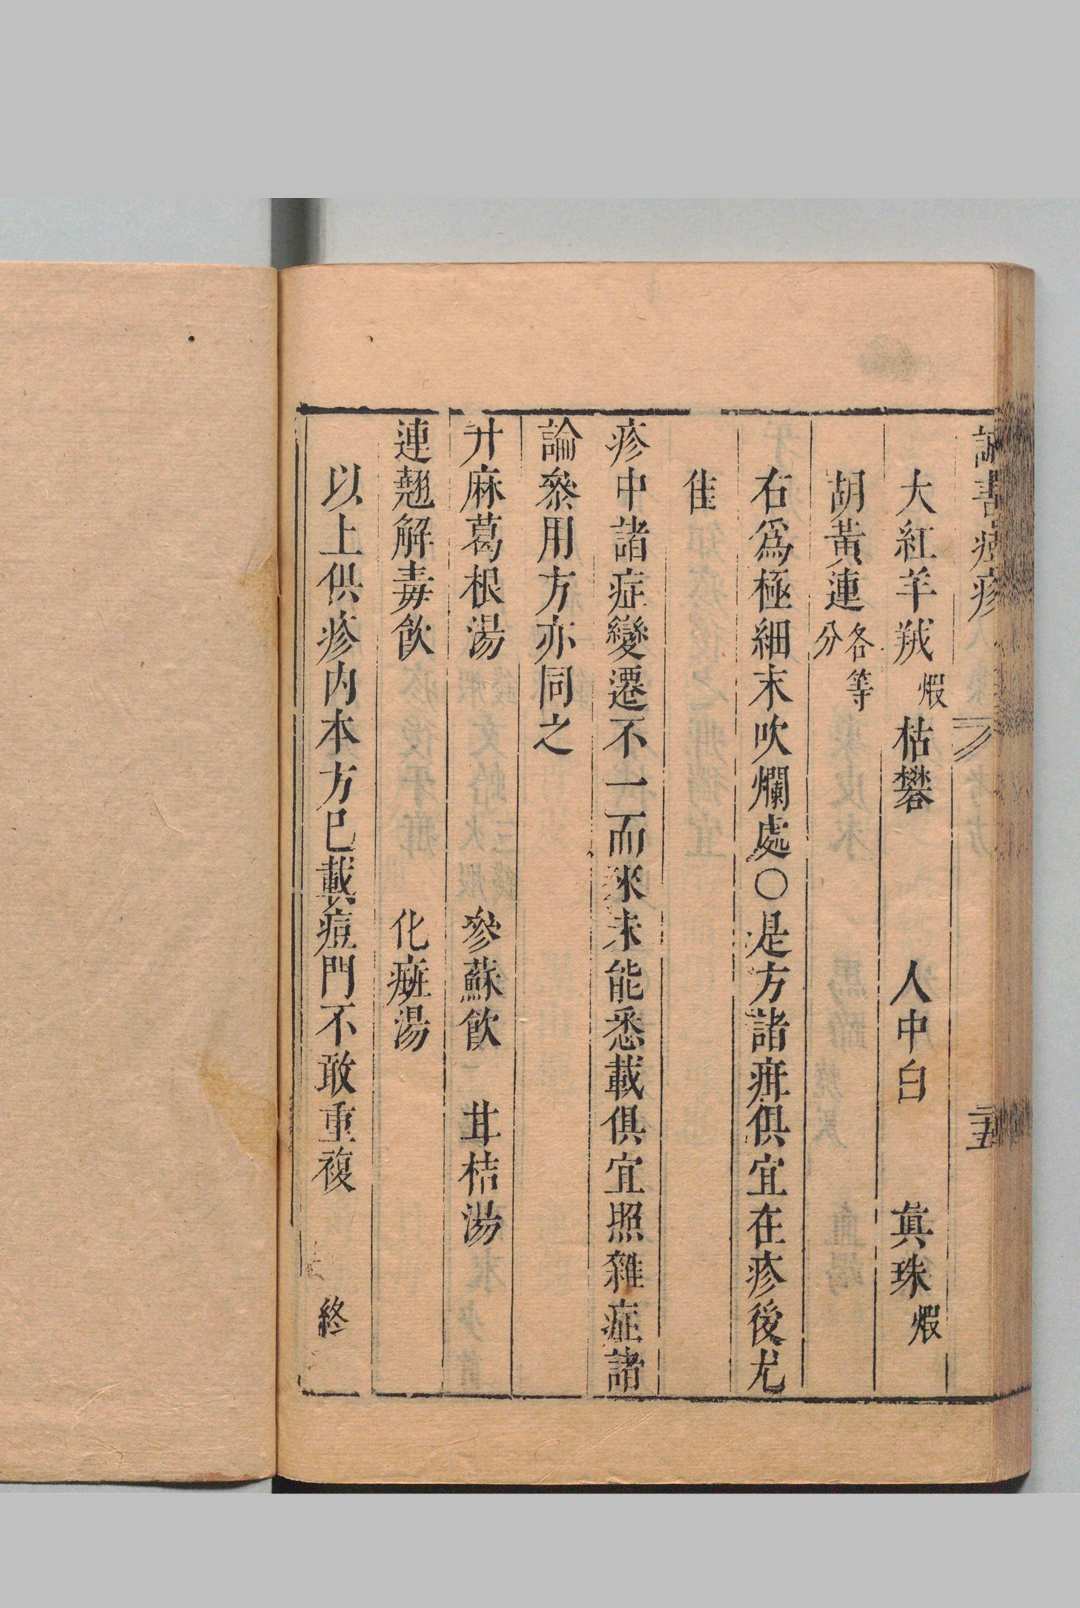 書痘疹
二十五
大紅羊羢煆 枯礬 人中白 真珠煆
胡黃連各等分
右為極細末吹爛處○是方諸疳俱宜在疹後尤
佳
疹中諸症變遷不一而來未能悉載俱宜照雜症諸
論叅用方亦同之
升麻葛根湯 參蘇飲 甘桔湯
連翹解毒飲 化㾦湯
以上供疹內本方已載痘門不敢重複
終